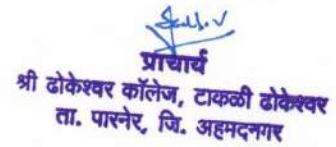 प्राचार्य
श्री ढोकेश्वर कॉलेज, टाकळी ढोकेश्वर
ता. पारनेर, जि. अहमदनगर